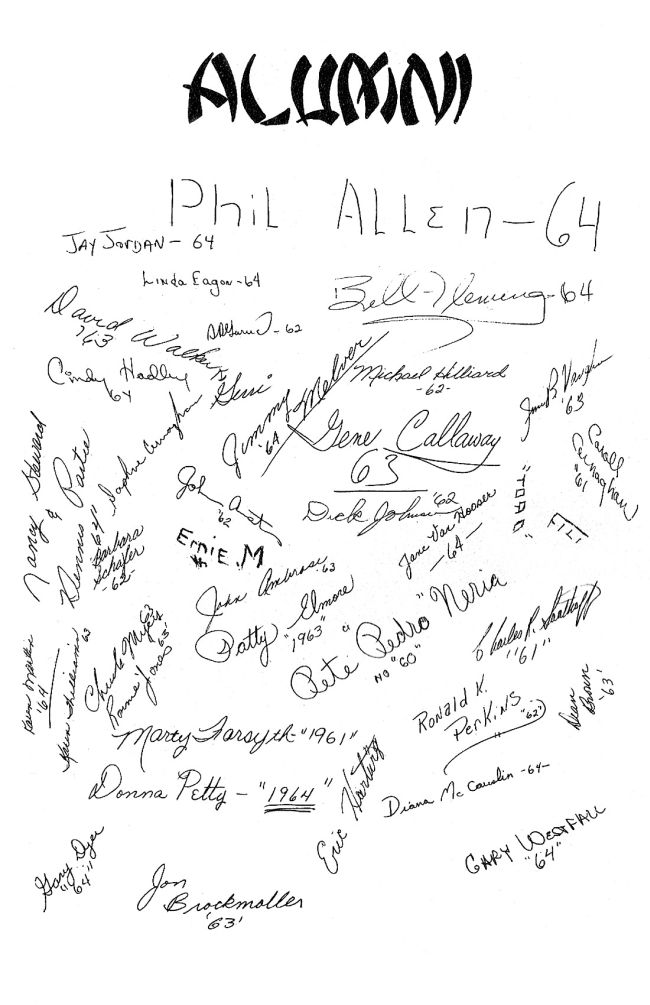 ALUMNI
Phil ALLEN - 64
JAY JORDAN - 64
Linda Eagon - 64
Bill Fleming - 64
David Walkup
'63
- 62
Cindy Hadley
64
Jimmy
'64
Michael Hilliard
- 62 -
Jim B. Vaughn
'63
Gene Callaway
63
Carnaghan
"61
Nancy Steward
&
Dennis Partie
Daphne Carnaghan
64"
John
'62
Dick Johnson '62
"TOAD"
FILI
Jane Van Hooser
- 64 -
Barbara
Schafer
- 62 -
ERNIE. M
John Ambrose '63
Patty Elmore
"1963"
Pete "Pedro" Neria
NO "60"
Charles R.
"61"
Chuck Myers
62
Ronnie Jones 63'
Karen Martin
'64
Karen Williams 63
Ronald K.
Perkins "62"
Dean
Brown
- 63'
Marty Forsyth - "1961"
Donna Petty - "1964"
Eric Hartwig
Diana McCauslin - 64 -
GARY WESTFALL
"64"
Gary Dyer
"64"
Jon
Brockmoller
'63'